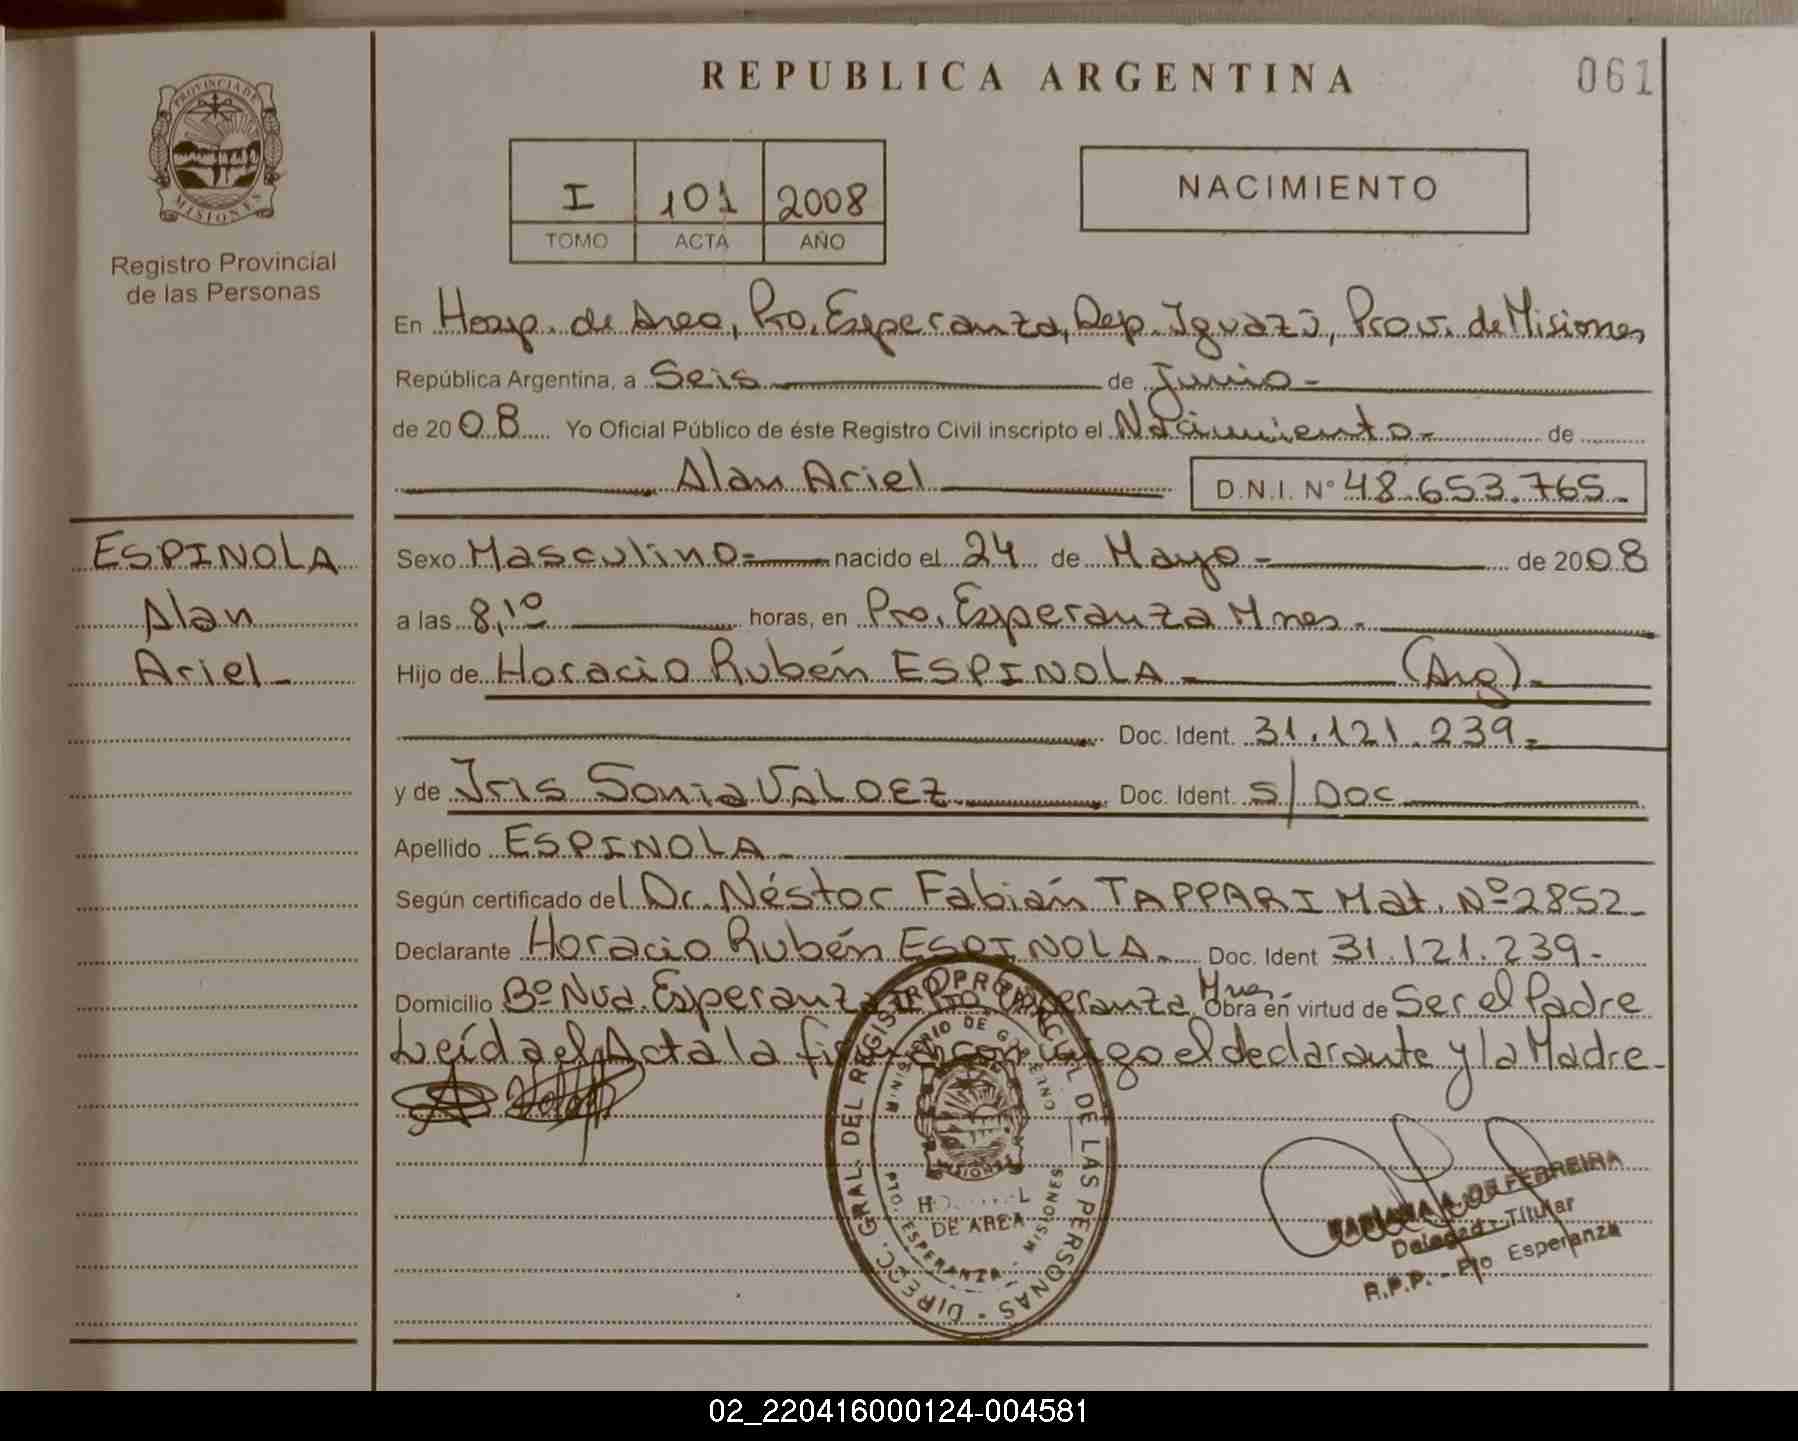 REPUBLICA ARGENTINA
061
PROVINCIA DE
MISIONES
Registro Provincial
de las Personas
I 101 2008
TOMO ACTA AÑO
NACIMIENTO
En Hosp. de Area, Pto. Esperanza, Dep. Iguazú, Prov. de Misiones
República Argentina, a Seis de Junio -
de 20 08 Yo Oficial Público de éste Registro Civil inscripto el Nacimiento - de
Alan Ariel D.N.I. N° 48.653.765 -
ESPINOLA
Alan
Ariel -
Sexo Masculino - nacido el 24 de Mayo - de 20 08
a las 8,10 horas, en Pto. Esperanza Mnes. -
Hijo de Horacio Rubén ESPINOLA - (Arg) -
Doc. Ident. 31.121.239 -
y de Iris Sonia VALDEZ Doc. Ident. S/Doc
Apellido ESPINOLA -
Según certificado del Dr. Néstor Fabián TAPPARI Mat. Nº 2852 -
Declarante Horacio Rubén ESPINOLA - Doc. Ident 31.121.239 -
Domicilio Bº Nva. Esperanza Pto Esperanza Mnes. - Obra en virtud de Ser el Padre
Leída el Acta la firman conmigo el declarante y la Madre -
DIRECC. GRAL. DEL REGISTRO PROVINCIAL DE LAS PERSONAS
MINISTERIO DE GOBIERNO
MISIONES
DE AREA
PTO. ESPERANZA - MISIONES
A. DE FERREIRA
Delegada Titular
R.P.P. - Pto Esperanza
02_220416000124-004581